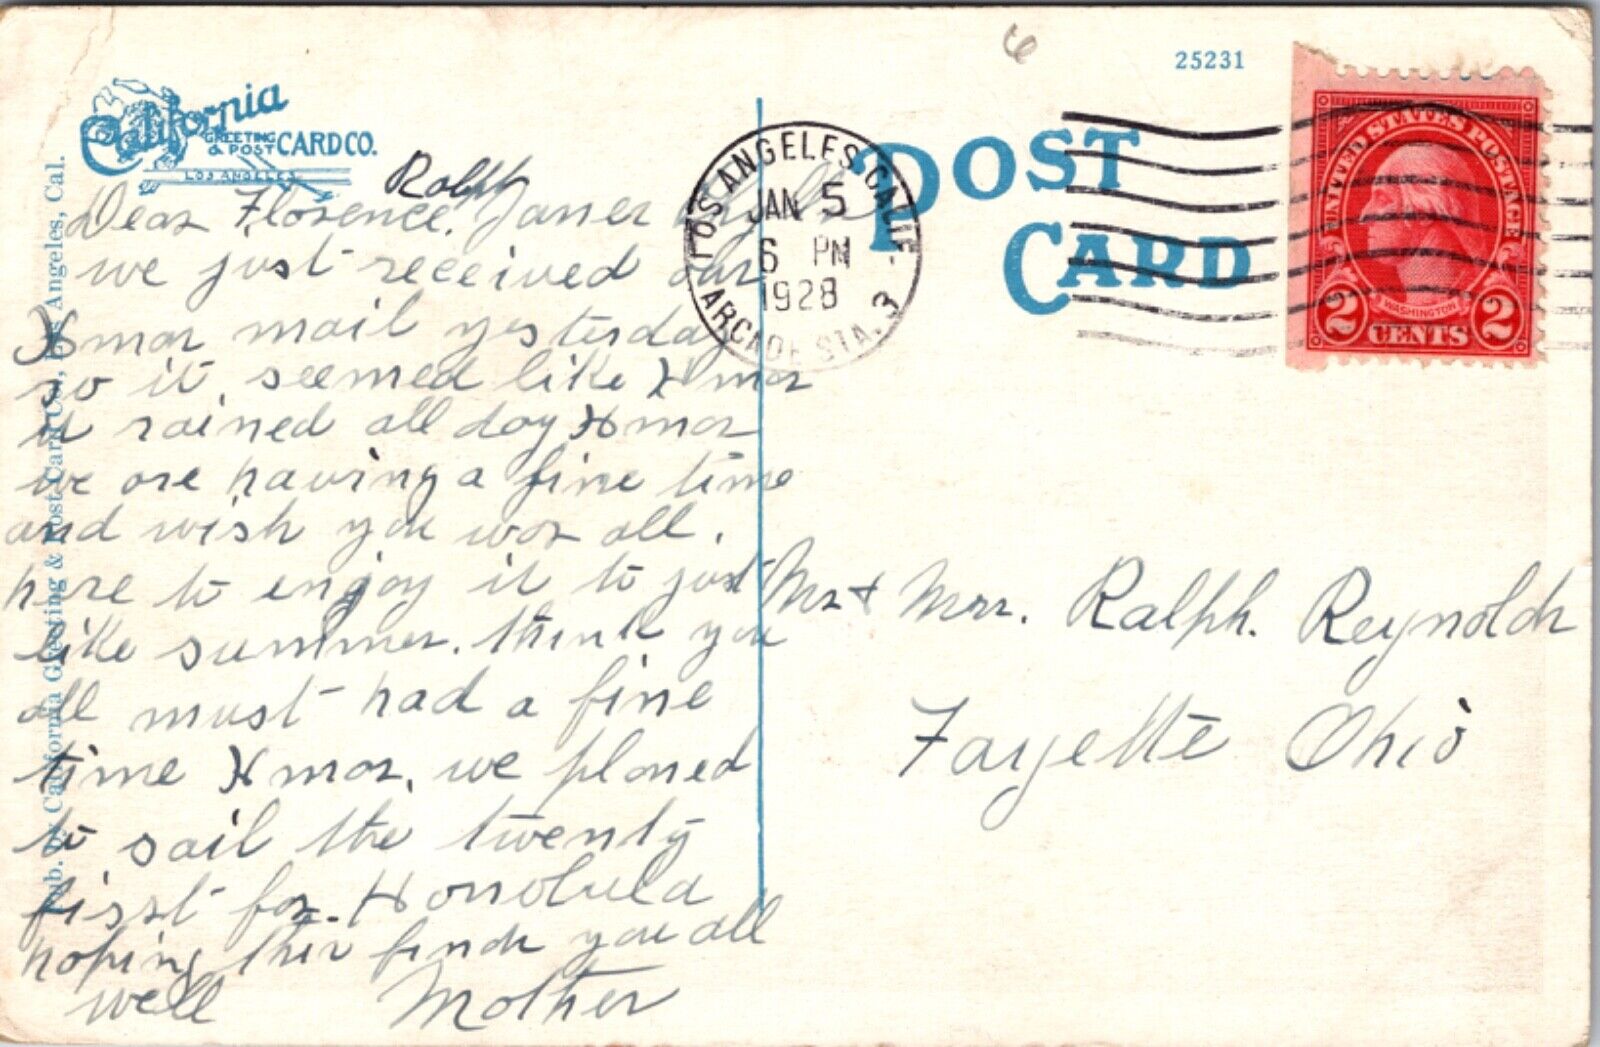 25231
California
GREETING
& POST CARD CO.
LOS ANGELES
POST
CARD
LOS ANGELES, CALIF.
JAN 5
6 PM
1928
ARCADE STA. 3
UNITED STATES POSTAGE
WASHINGTON
2 CENTS 2
Pub. by California Greeting & Post Card Co., Los Angeles, Cal.
Ralph
Dear Florence, James
we just received our
Xmas mail yesterday
so it seemed like Xmas
it rained all day Xmas
we are having a fine time
and wish you was all.
here to enjoy it to just
like summer. think you
all must had a fine
time Xmas. we planed
to sail the twenty
first for Honolulu
hoping this finds you all
well Mother
Mr & Mrs. Ralph. Reynolds
Fayette Ohio